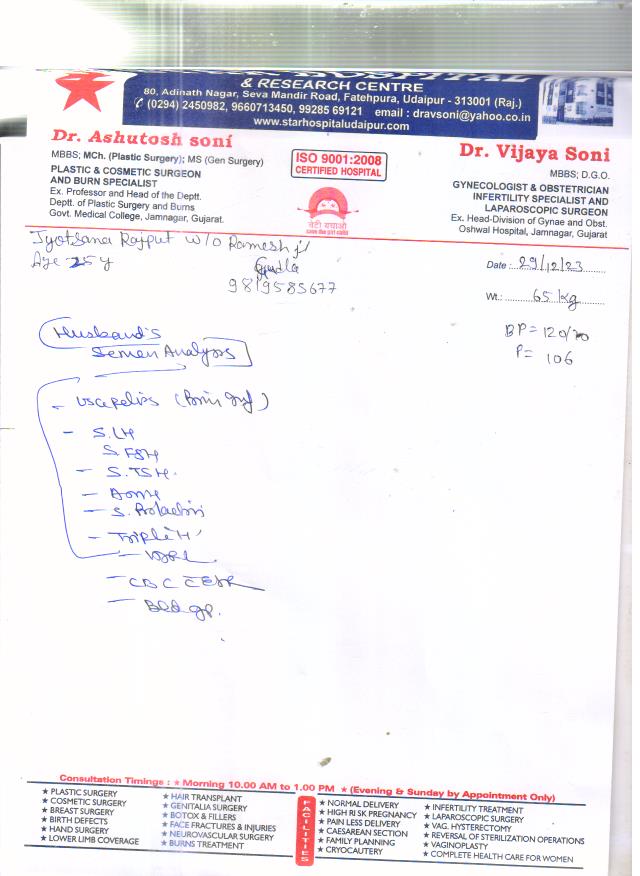 HOSPITAL
& RESEARCH CENTRE
80, Adinath Nagar, Seva Mandir Road, Fatehpura, Udaipur - 313001 (Raj.)
(0294) 2450982, 9660713450, 99285 69121 email : dravsoni@yahoo.co.in
www.starhospitaludaipur.com
Dr. Ashutosh soni
MBBS; MCh. (Plastic Surgery); MS (Gen Surgery)
PLASTIC & COSMETIC SURGEON
AND BURN SPECIALIST
Ex. Professor and Head of the Deptt.
Deptt. of Plastic Surgery and Burns
Govt. Medical College, Jamnagar, Gujarat.
ISO 9001:2008
CERTIFIED HOSPITAL
बेटी बचाओ
Dr. Vijaya Soni
MBBS; D.G.O.
GYNECOLOGIST & OBSTETRICIAN
INFERTILITY SPECIALIST AND
LAPAROSCOPIC SURGEON
Ex. Head-Division of Gynae and Obst.
Oshwal Hospital, Jamnagar, Gujarat
Jyotsana Rajput w/o Ramesh ji
Age 25 y
Date : 29/12/23
Wt.: 65 kg
BP = 120/70
P = 106
Husband's
Semen Analysis
- S. LH
S. FSH
- S. TSH.
- S. Prolactin
- Triple H
- VDRL
- CBC C ESR
- Bld gp.
Consultation Timings : ★ Morning 10.00 AM to 1.00 PM ★ (Evening & Sunday by Appointment Only)
★ PLASTIC SURGERY
★ COSMETIC SURGERY
★ BREAST SURGERY
★ BIRTH DEFECTS
★ HAND SURGERY
★ LOWER LIMB COVERAGE
★ HAIR TRANSPLANT
★ GENITALIA SURGERY
★ BOTOX & FILLERS
★ FACE FRACTURES & INJURIES
★ NEUROVASCULAR SURGERY
★ BURNS TREATMENT
FACILITIES
★ NORMAL DELIVERY
★ HIGH RISK PREGNANCY
★ PAIN LESS DELIVERY
★ CAESAREAN SECTION
★ FAMILY PLANNING
★ CRYOCAUTERY
★ INFERTILITY TREATMENT
★ LAPAROSCOPIC SURGERY
★ VAG. HYSTERECTOMY
★ REVERSAL OF STERILIZATION OPERATIONS
★ VAGINOPLASTY
★ COMPLETE HEALTH CARE FOR WOMEN